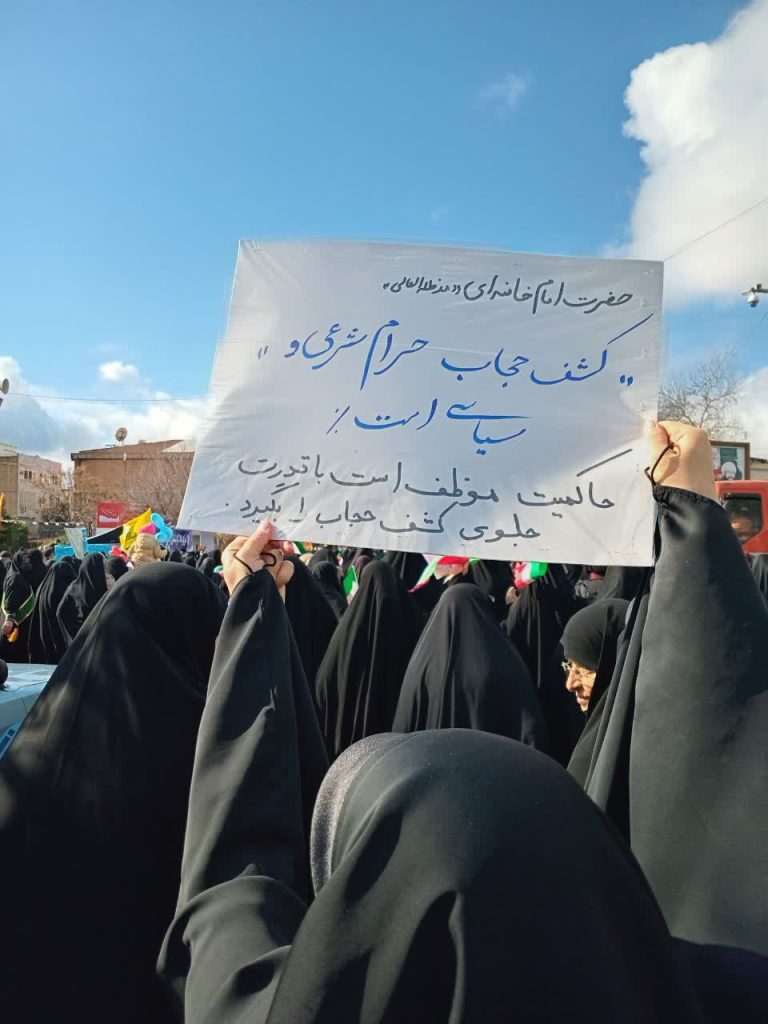 حضرت امام خامنه‌ای «مدظله العالی»
" کشف حجاب حرام شرعی و "
سیاسی است ٪
حاکمیت موظف است با قدرت
جلوی کشف حجاب را بگیرد.